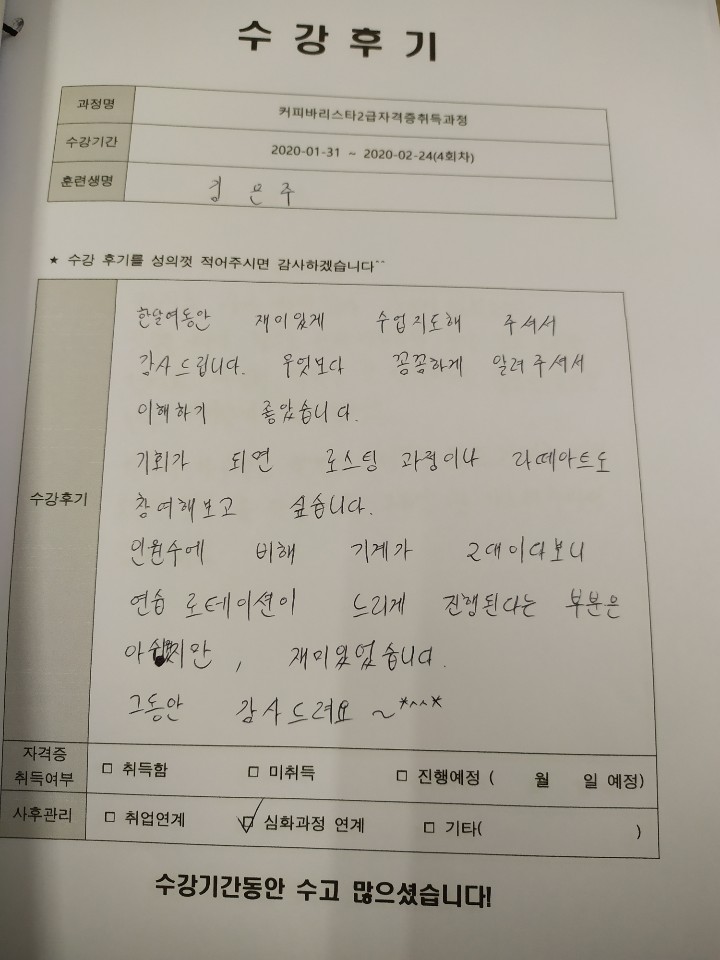 수 강 후 기
과정명 커피바리스타2급자격증취득과정
수강기간 2020-01-31 ~ 2020-02-24(4회차)
훈련생명 김 은 주
★ 수강 후기를 성의껏 적어주시면 감사하겠습니다^^
수강후기
한달여동안 재미있게 수업지도해 주셔서
감사드립니다. 무엇보다 꼼꼼하게 알려주셔서
이해하기 좋았습니다.
기회가 되면 로스팅 과정이나 라떼아트도
참여해보고 싶습니다.
인원수에 비해 기계가 2대이다보니
연습 로테이션이 느리게 진행된다는 부분은
아쉽지만, 재미있었습니다.
그동안 감사드려요 ~*^^*
자격증
취득여부 □ 취득함 □ 미취득 □ 진행예정 ( 월 일 예정)
사후관리 □ 취업연계 ☑ 심화과정 연계 □ 기타( )
수강기간동안 수고 많으셨습니다!